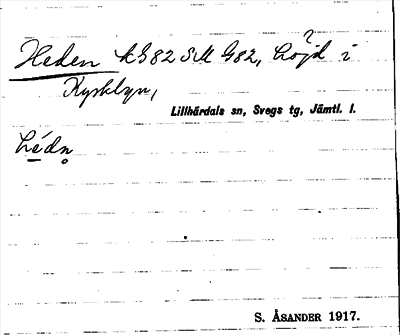 Heden k S 82 SM G82, höjd i
Kyrkbyn,
Lillhärdals sn, Svegs tg, Jämtl. l.
hédn̥
S. ÅSANDER 1917.